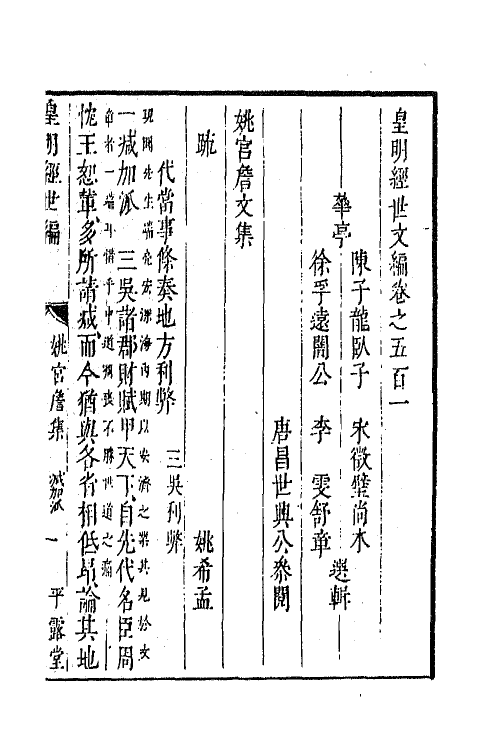 皇明經世文編卷之五百一
陳子龍臥子 宋徵璧尚木
華亭 選輯
徐孚遠闇公 李雯舒章
唐昌世興公參閱
姚宮詹文集
疏 姚希孟
代當事條奏地方利弊 三吳利弊
現聞先生端亮宏深海內期以安濟之業其見於文
一減加派 三吳諸郡財賦甲天下自先代名臣周
章者一端耳惜乎中道殞喪不勝世道之痛
忱王恕輩多所請減而今猶與各省相低昂論其地
皇明經世編 姚宮詹集 加派 一 平露堂